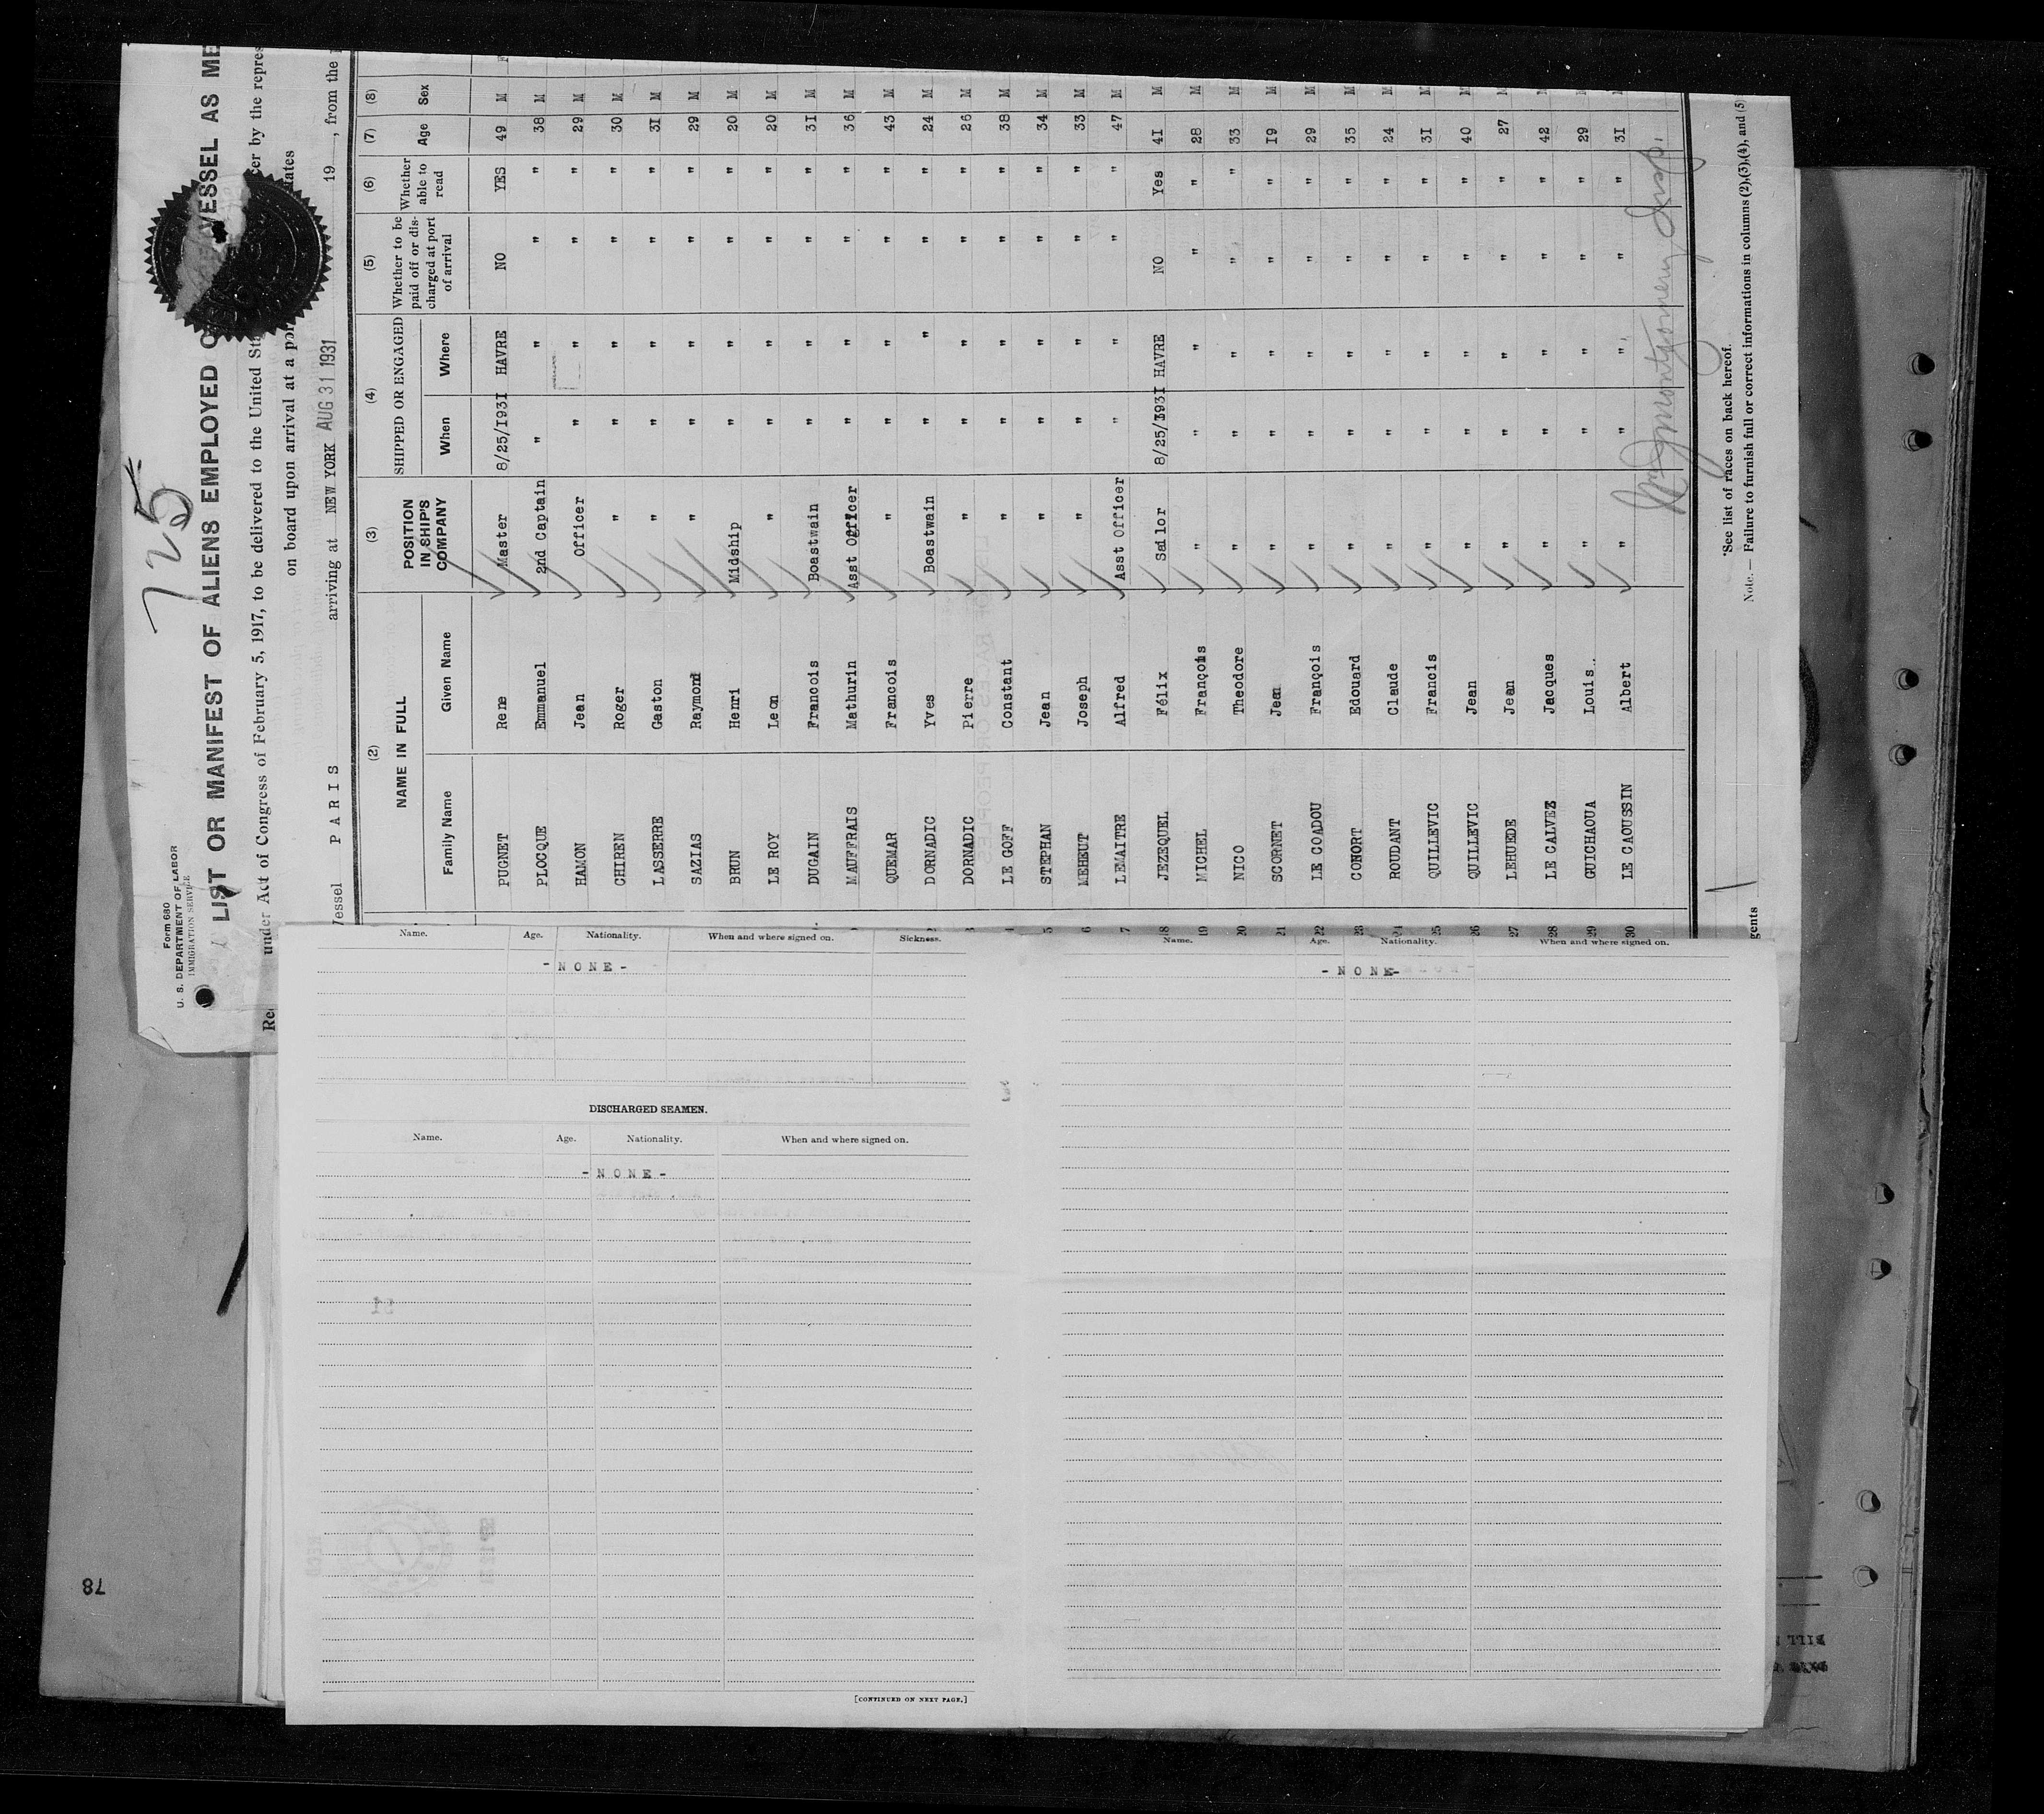 725
Form 680
U. S. DEPARTMENT OF LABOR
IMMIGRATION SERVICE
LIST OR MANIFEST OF ALIENS EMPLOYED O VESSEL AS ME
under Act of Congress of February 5, 1917, to be delivered to the United St cer by the repres
on board upon arrival at a por tates
Vessel PARIS arriving at NEW YORK AUG 31 1931 19 , from the
(2) (3) (4) (5) (6) (7) (8)
NAME IN FULL POSITION IN SHIP'S COMPANY SHIPPED OR ENGAGED Whether to be paid off or discharged at port of arrival Whether able to read Age Sex
Family Name Given Name When Where
PUGNET Rene Master 8/25/I93I HAVRE NO YES 49 M
PLOCQUE Emmanuel 2nd Captain " " " " 38 M
HAMON Jean Officer " " " " 29 M
CHIREN Roger " " " " " 30 M
LASSERRE Gaston " " " " " 3I M
SAZIAS Raymond " " " " " 29 M
BRUN Henri Midship " " " " 20 M
LE ROY Leon " " " " " 20 M
DUGAIN Francois Boastwain " " " " 3I M
MAUFFRAIS Mathurin Asst Officer " " " " 36 M
QUEMAR Francois " " " " " 43 M
2 DORNADIC Yves Boastwain " " " " 24 M
3 DORNADIC Pierre " " " " " 26 M
4 LE GOFF Constant " " " " " 38 M
5 STEPHAN Jean " " " " " 34 M
6 MEHEUT Joseph " " " " " 33 M
7 LEMAITRE Alfred Asst Officer " " " " 47 M
18 JEZEQUEL Félix Sailor 8/25/I93I HAVRE NO Yes 4I M
19 MICHEL François " " " " " 28 M
20 NICO Theodore " " " " " 33 M
21 SCORNET Jean " " " " " I9 M
22 LE COADOU François " " " " " 29 M
23 CONORT Edouard " " " " " 35 M
24 ROUDANT Claude " " " " " 24 M
25 QUILLEVIC Francis " " " " " 3I M
26 QUILLEVIC Jean " " " " " 40 M
27 LEHUEDE Jean " " " " " 27 M
28 LE CALVEZ Jacques " " " " " 42 M
29 GUICHAOUA Louis " " " " " 29 M
30 LE CAOUSSIN Albert " " " " " 3I M
Montgomery Insp.
*See list of races on back hereof.
Note. — Failure to furnish full or correct informations in columns (2),(3),(4), and (5)
gents
Name. Age. Nationality. When and where signed on. Sickness.
- N O N E -
DISCHARGED SEAMEN.
Name. Age. Nationality. When and where signed on.
- N O N E -
[CONTINUED ON NEXT PAGE.]
Name. Age. Nationality. When and where signed on.
- N O N E -
78